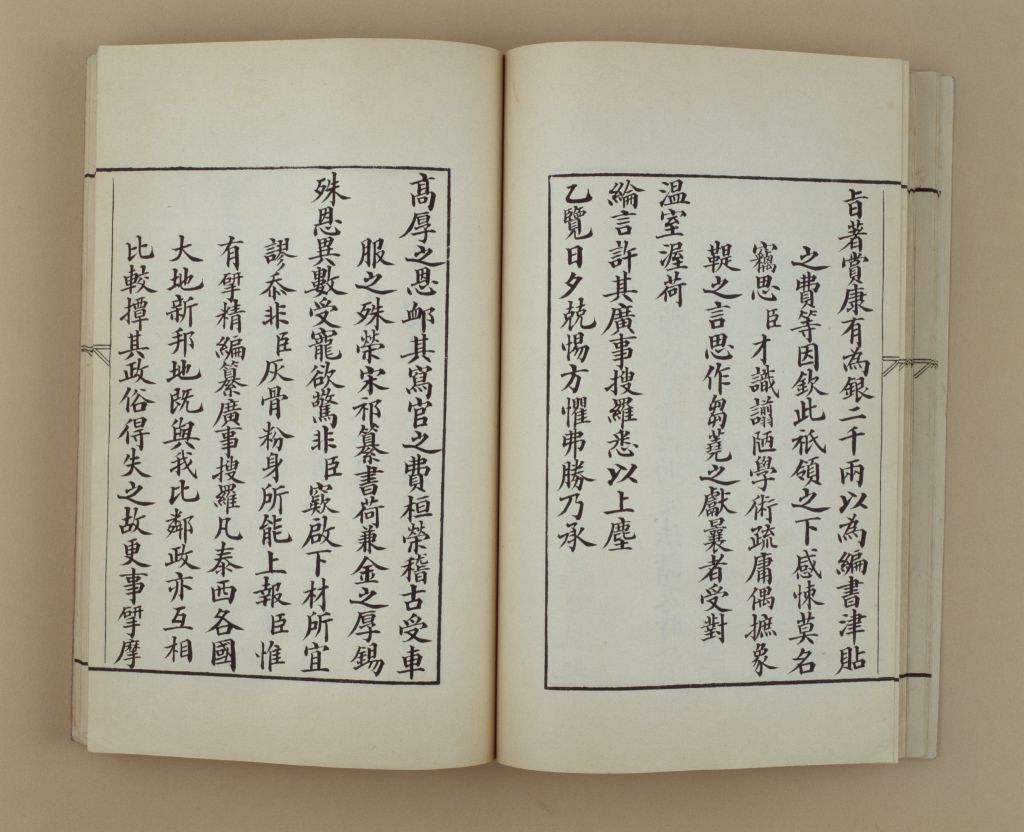 旨著賞康有為銀二千兩以為編書津貼
之費等因欽此祇領之下感悚莫名
竊思臣才識謭陋學術疏庸偶摭象
鞮之言思作芻蕘之獻曩者受對
温室渥荷
綸言許其廣事搜羅悉以上塵
乙覽日夕兢惕方懼弗勝乃承
高厚之恩䘏其寫官之費桓榮稽古受車
服之殊榮宋祁纂書荷兼金之厚錫
殊恩異數受寵欲驚非臣窾啟下材所宜
謬忝非臣灰骨粉身所能上報臣惟
有揅精編纂廣事搜羅凡泰西各國
大地新邦地既與我比鄰政亦互相
比較撢其政俗得失之故更事揅摩